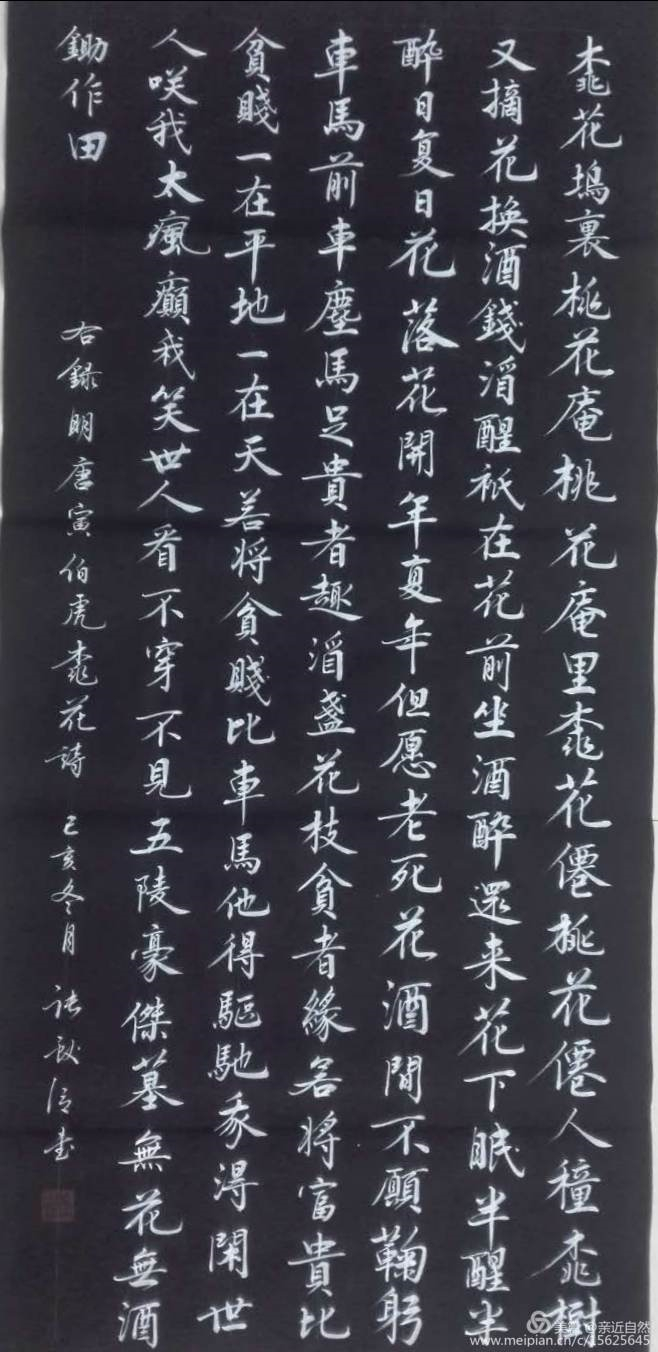 桃花塢裏桃花庵桃花庵里桃花僊桃花僊人種桃樹
又摘花換酒錢酒醒衹在花前坐酒醉還来花下眠半醒坐
醉日复日花落花開年复年但愿老死花酒間不願鞠躬
車馬前車塵馬足貴者趣酒盞花枝貧者緣若将富貴比
貧賤一在平地一在天若将貧賤比車馬他得驅馳我得閑世
人咲我太瘋癲我笑世人看不穿不見五陵豪傑墓無花無酒
鋤作田
右錄明唐寅伯虎桃花詩 己亥冬月 书
美篇@亲近自然
www.meipian.cn/c/15625645